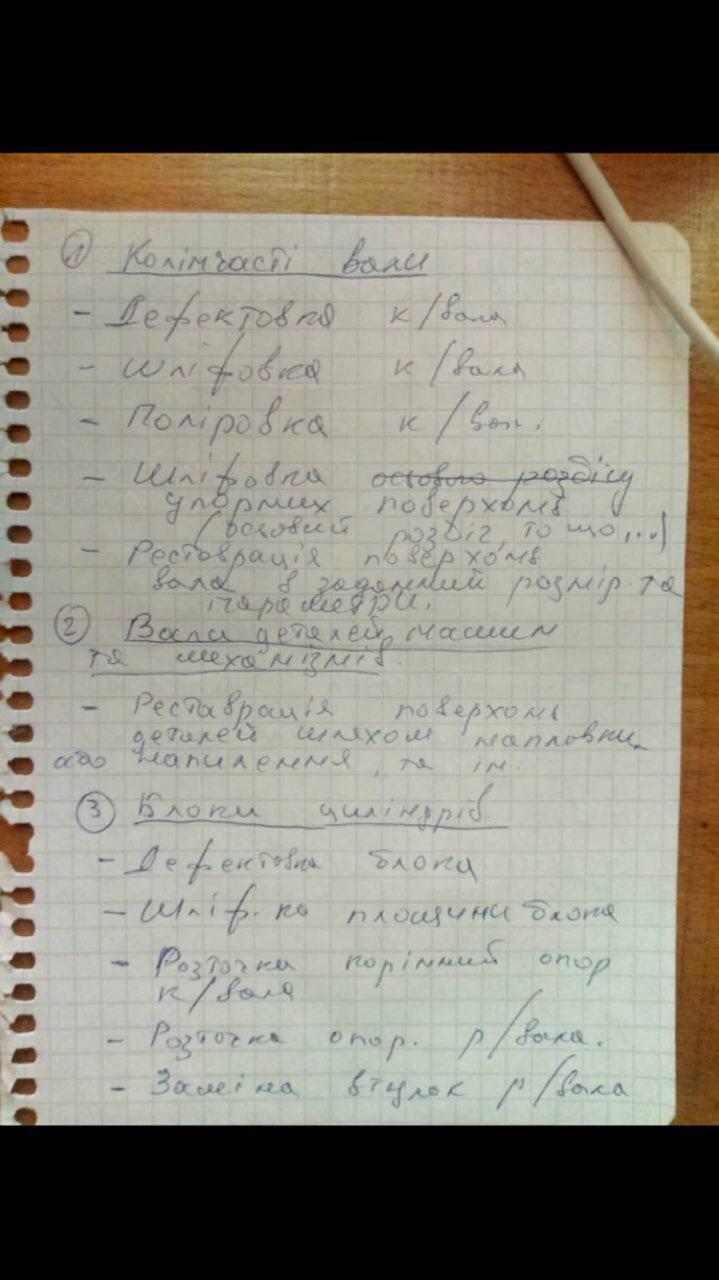 ① Колінчасті вали
- Дефектовка к/вала
- Шліфовка к/вала
- Поліровка к/вал.
- Шліфовка осьового розбігу
упорних поверхонь
(осьовий розбіг, то що,...)
- Реставрація поверхонь
вала в заданний розмір та
параметри.
② Вали деталей, машин
та механізмів.
- Реставрація поверхонь
деталей шляхом наплавки
або напилення, та ін.
③ Блоки циліндрів.
- Дефектовка блока
- Шліф-ка площини блока
- Розточка корінний опор
к/вала
- Розточка опор. р/вала.
- Заміна втулок р/вала